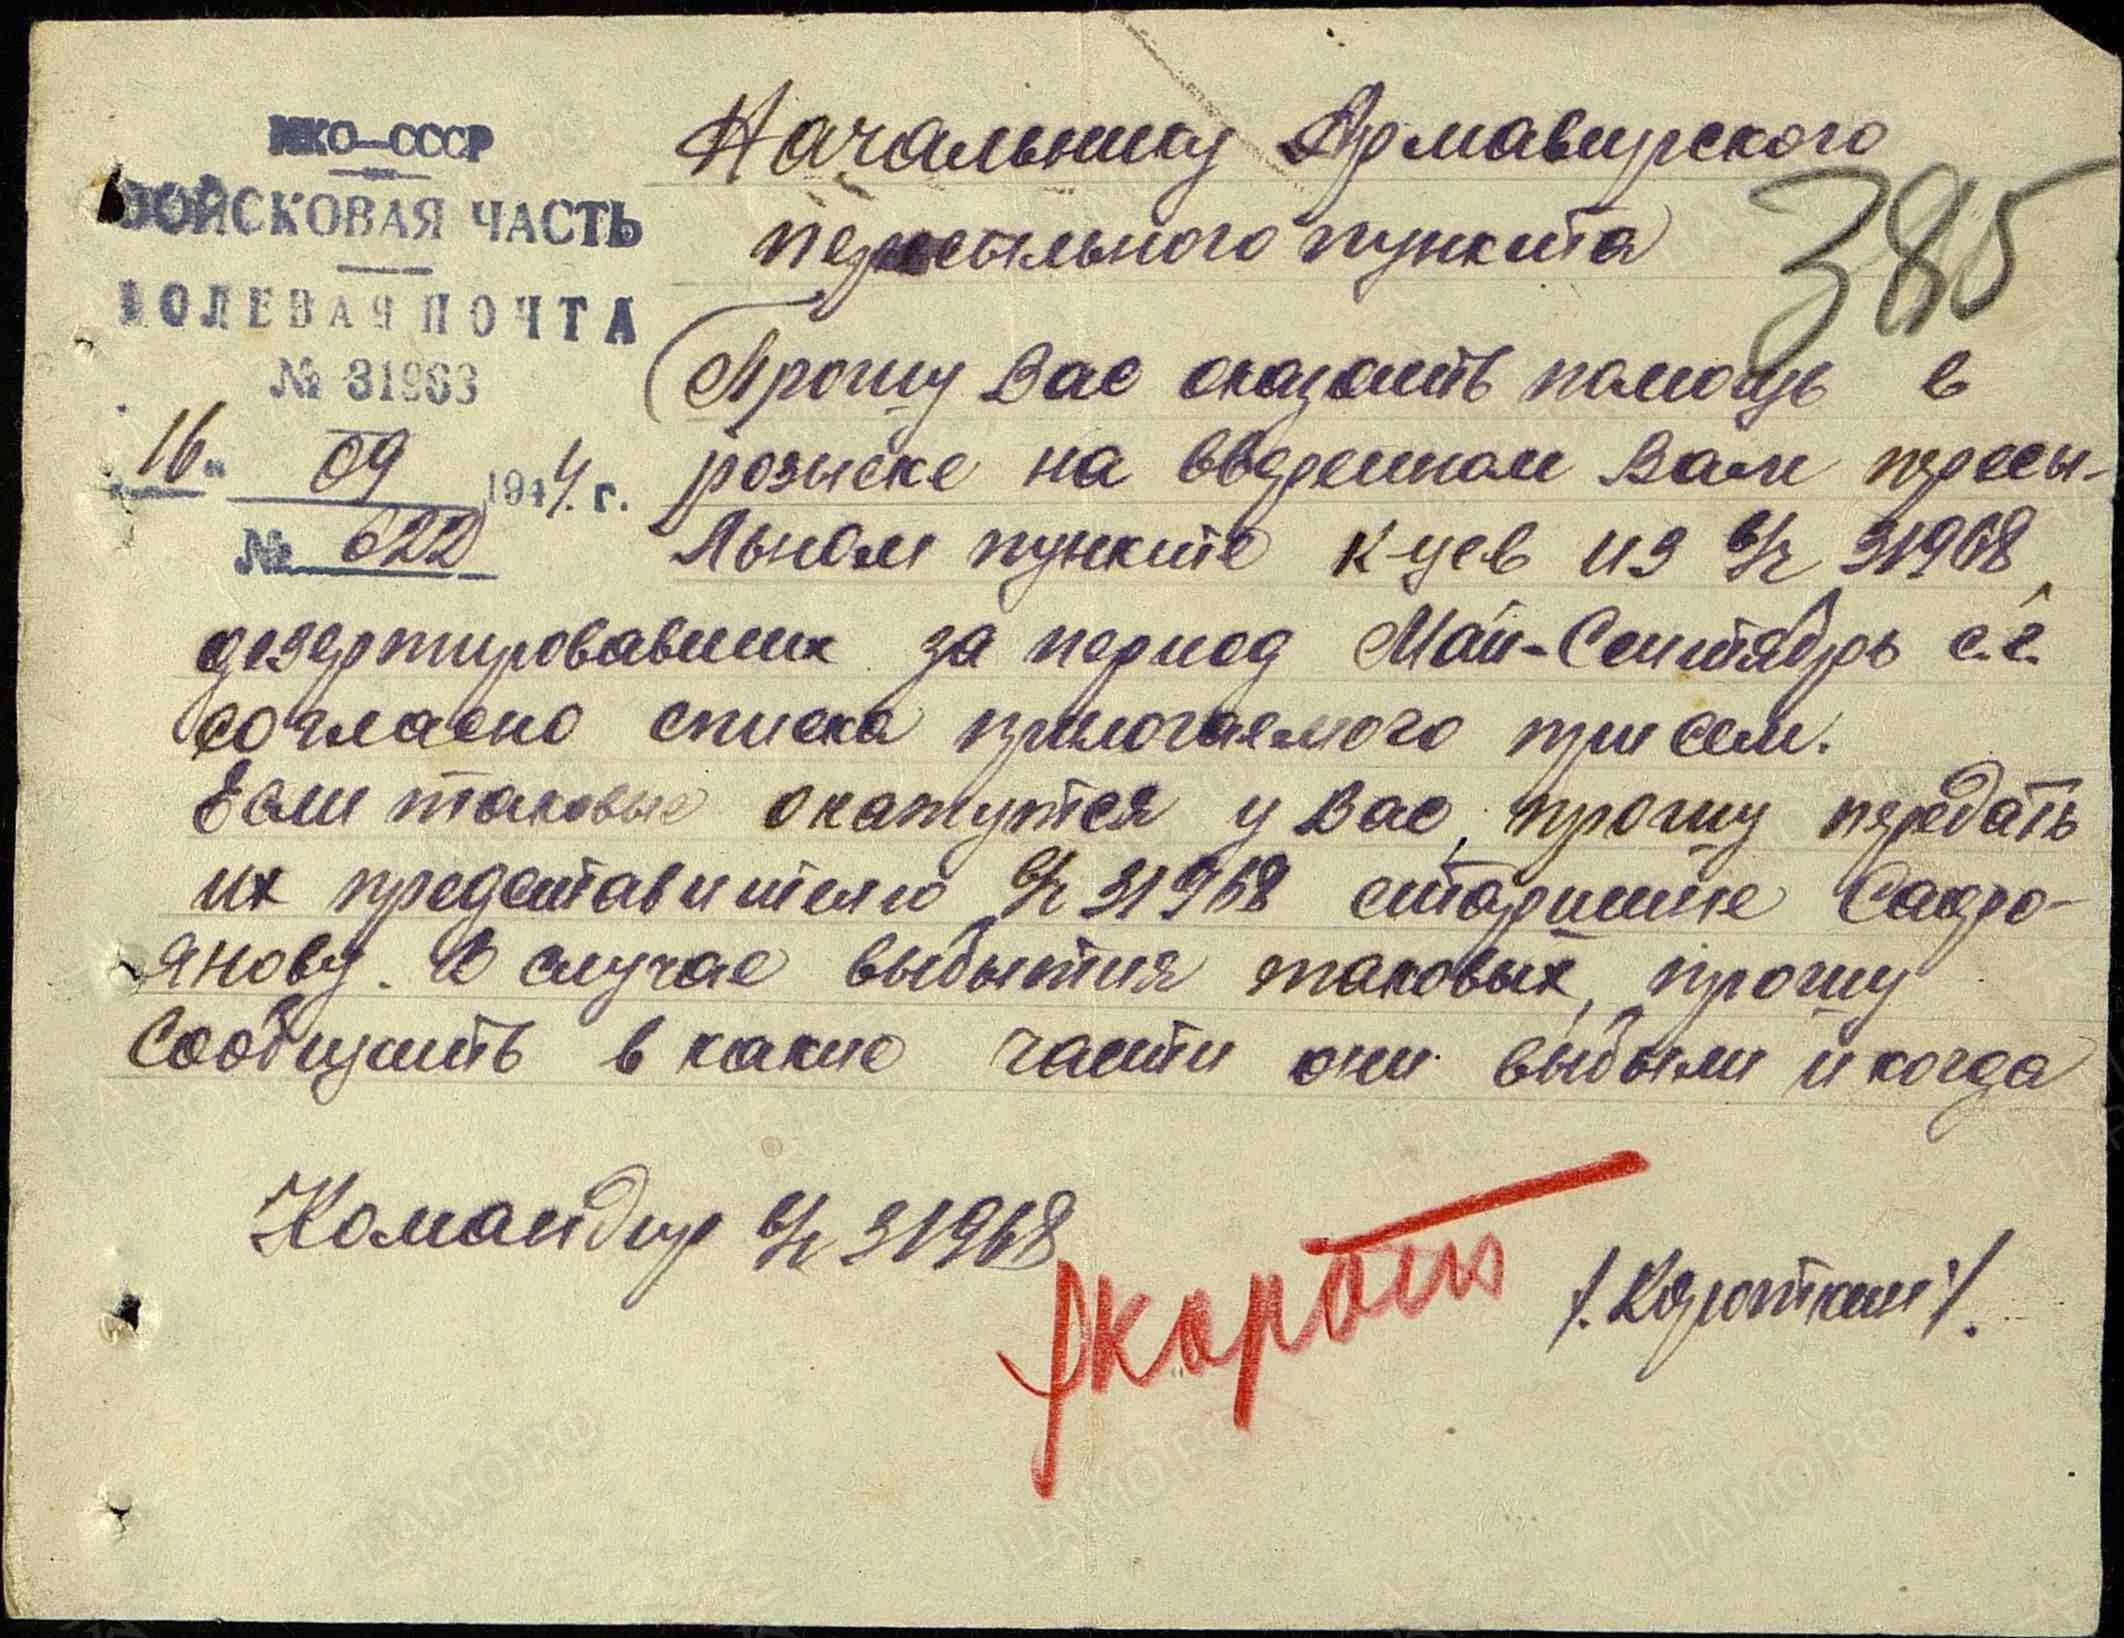 НКО-СССР
ВОЙСКОВАЯ ЧАСТЬ
ПОЛЕВАЯ ПОЧТА
№ 31968
16. 09 1944. г.
№ 622
385
Начальнику Армавирского
пересыльного пункта
Прошу Вас оказать помощь в
розыске на вверенном Вам пересы-
льном пункте к-цев из в/ч 31968,
дезертировавших за период Май-Сентябрь с.г.
согласно списка прилогаемого при сем.
Если таковые окажутся у Вас, прошу передать
их представителю в/ч 31968 старшине Садро-
янову. В случае выбытия таковых, прошу
сообщить в какие части они выбыли и когда
Командир в/ч 31968
/. Короткий /.